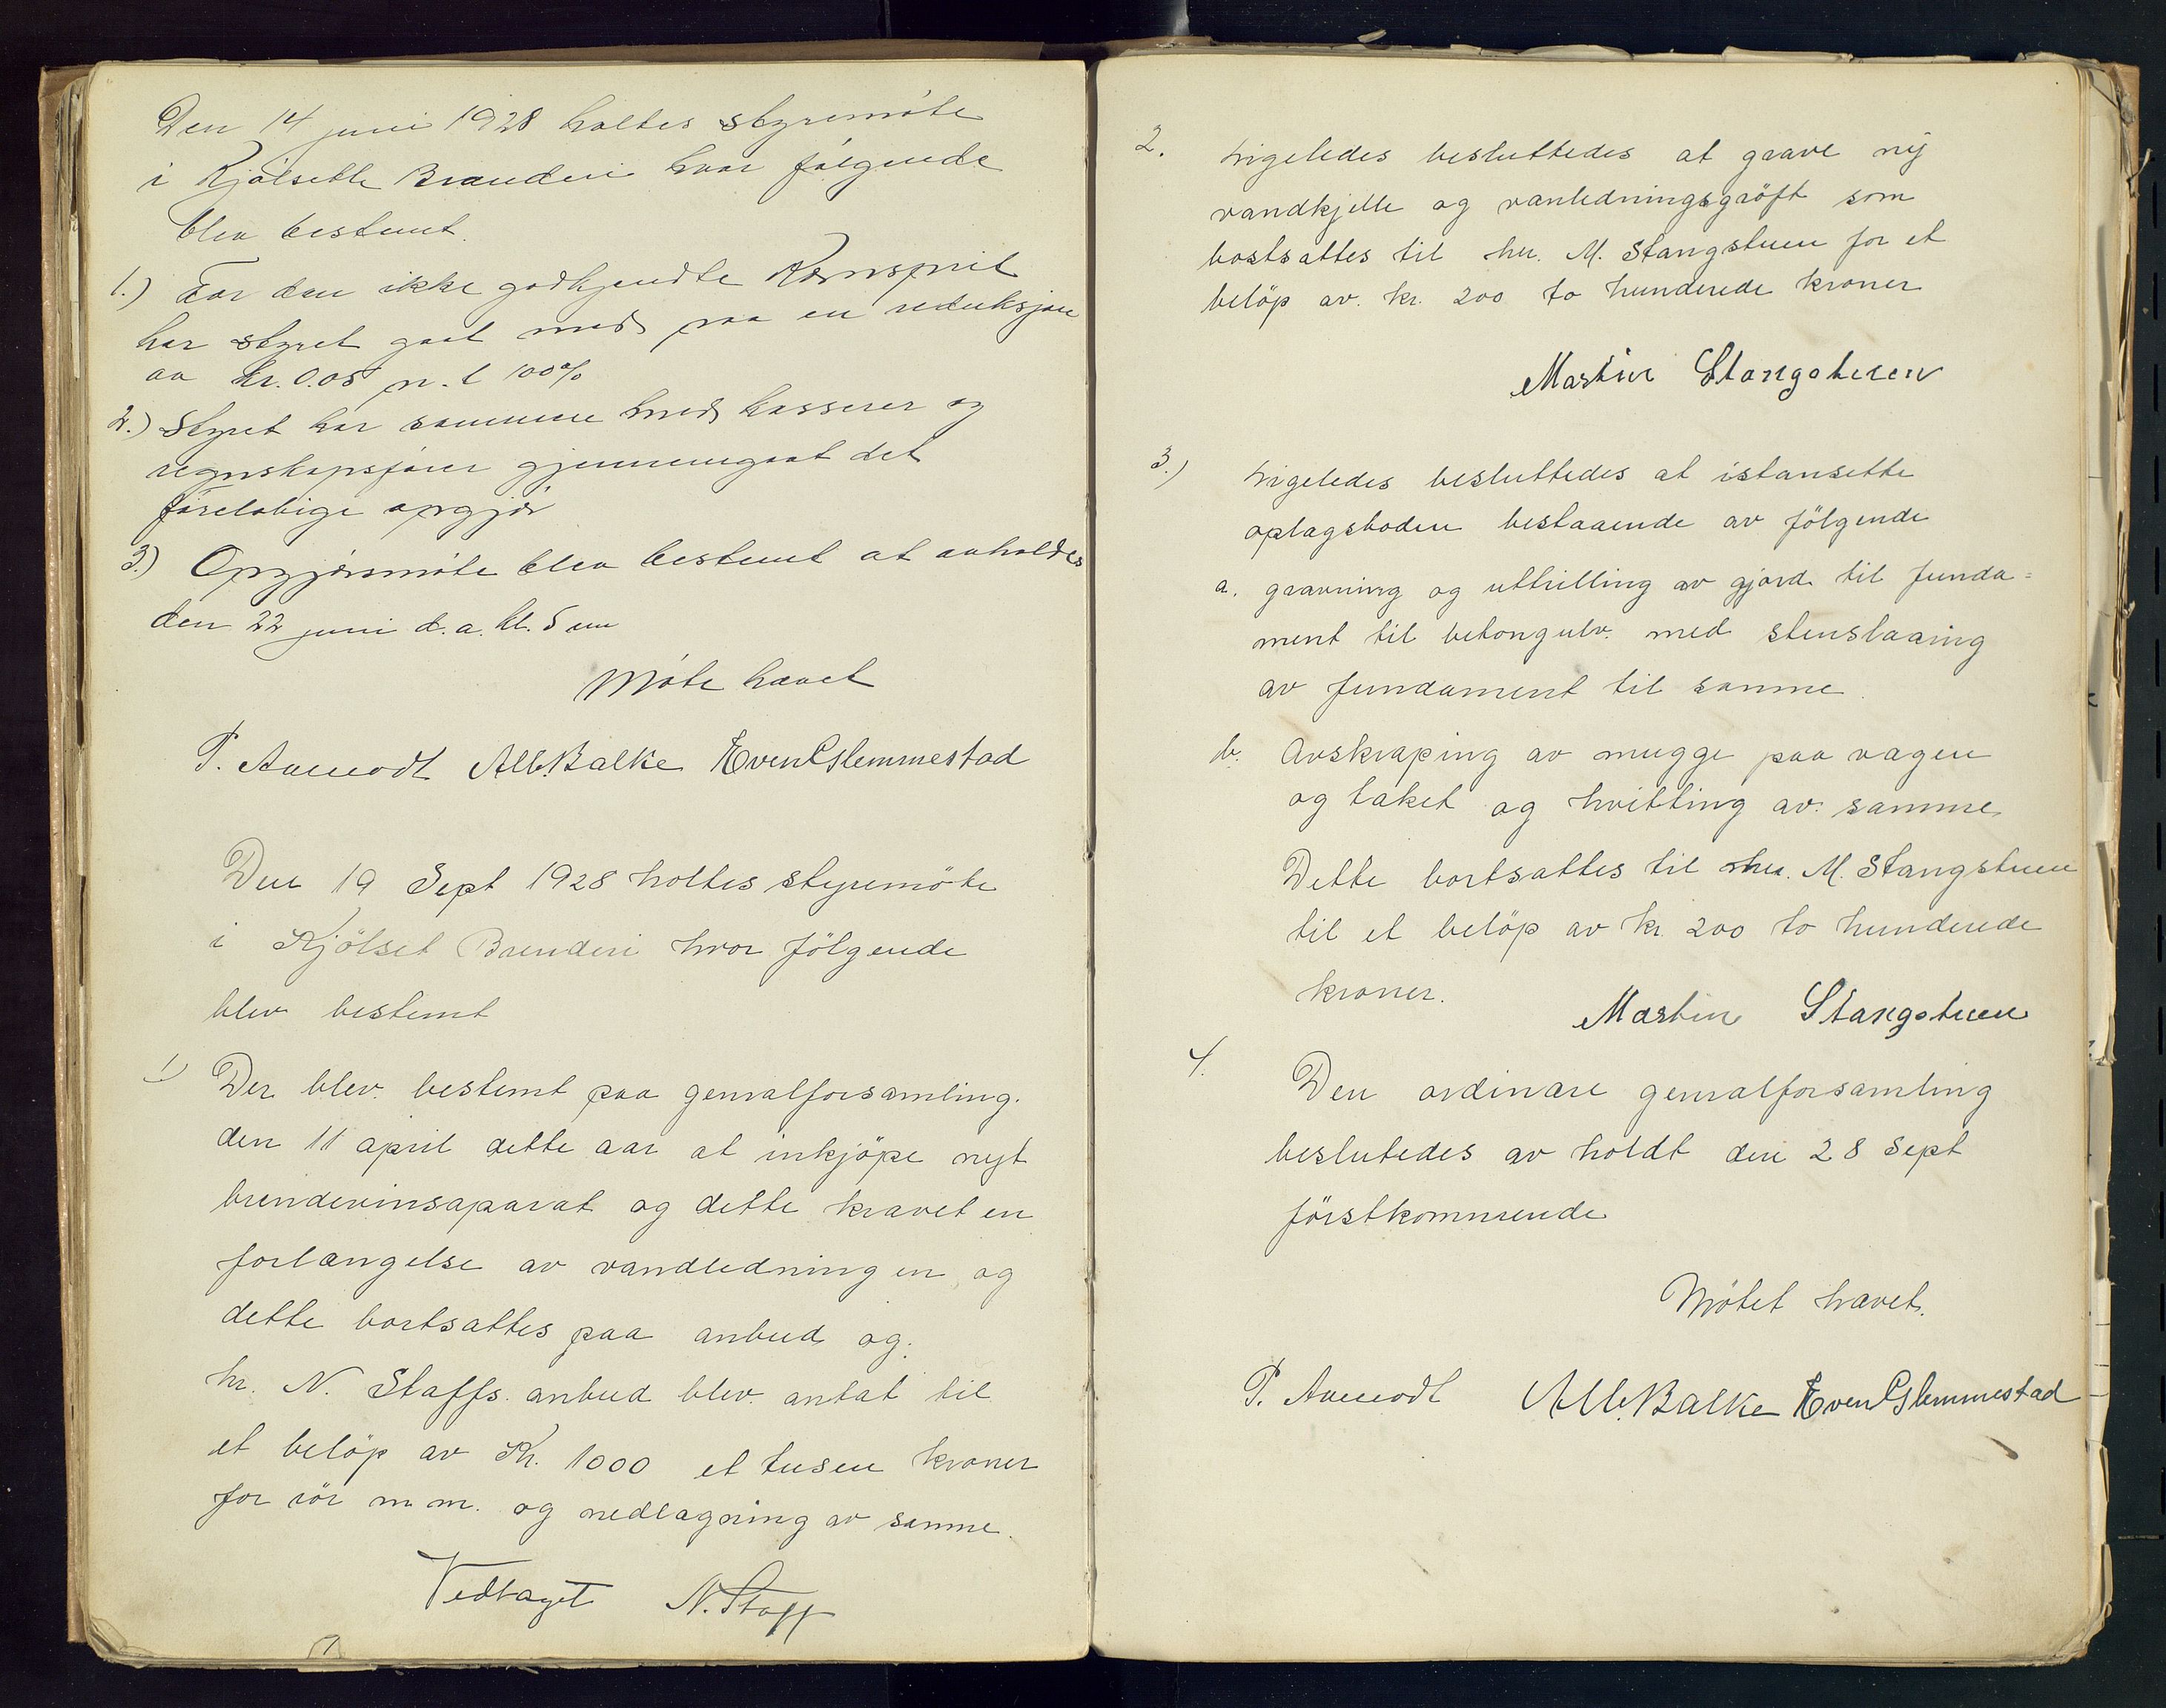 Den 14 juni 1928 holtes styremöte
i Kjölsette Brænderi hvor fölgende
blev bestemt.
1.) For den ikke godkjendte Kornsprit
har styret gaat med paa en reduksjon
av kr. 0.05 pr. l 100%
2.) Styret har sammen med kasserer og
regnskapsförer gjennemgaat det
förelobige opgjör
3.) Opgjörsmöte blev bestemt at avholdes
den 22 juni d. a. kl. 5 em
Möte hævet
P. Aamodt Alb. Balke Even Glemmestad
Den 19 Sept 1928 holtes styremöte
i Kjölset Brenderi hvor fölgende
blev bestemt
1) Der blev bestemt paa genralforsamling.
den 11 april dette aar at inkjöpe nyt
brendevinsaparat og dette krævet en
forlængelse av vandledningen og
dette bortsattes paa anbud og.
hr. N. Staffs. anbud blev antat til
et belöp av Kr. 1000 et tusen kroner
for rör m. m. og nedlagning av samme.
Vedtaget N. Staff
2. Ligeledes besluttedes at grave ny
vandkjelle og vanledningsgröft som
bostsattes til hr. M. Stangstuen for et
belöp av. kr. 200 to hunderede kroner
Martin Stangstuen
3.) Ligeledes besluttedes at istansette
oplagsboden bestaaende av fölgende
a. gravning og uttrilling av gjord til funda=
ment til betongulv. med stenslaaing
av fundament til samme.
b. Avskraping av mugge paa vægen
og taket og hvitting av samme.
Dette bortsattes til hr. M. Stangstuen
til et belöp av kr. 200 to hunderede
kroner.
Martin Stangstuen
4. Den ordinære genralforsamling
beslutedes av holdt den 28 Sept
förstkommende
Mötet hævet.
P. Aamodt Alb. Balke Even Glemmestad